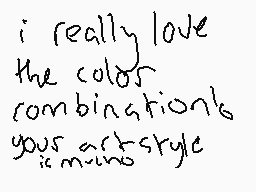 i really love
the color
combination's
your artstyle
is mucho